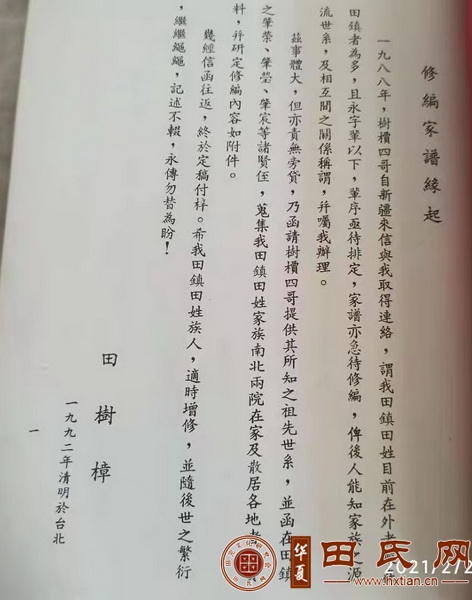 修編家譜緣起
一九八八年，樹檟四哥自新疆來信與我取得連絡，謂我田鎮田姓目前在外者
田鎮者為多，且永字輩以下，輩序亟待排定，家譜亦急待修編，俾後人能知家族之源
流世系，及相互間之關係稱謂，幷囑我辦理。
茲事體大，但亦責無旁貸，乃函請樹檟四哥提供其所知之祖先世系，並函在田鎮
之肇榮、肇瑩、肇宸等諸賢侄，蒐集我田鎮田姓家族南北兩院在家及散居各地
料，幷研定修編內容如附件。
幾經信函往返，終於定稿付梓。希我田鎮田姓族人，適時增修，並隨後世之繁衍
，繼繼繩繩，記述不輟，永傳勿替為盼！
田樹樟
一九九二年清明於台北
一
2021/2/2
華夏
田氏网
www.hxtian.cn